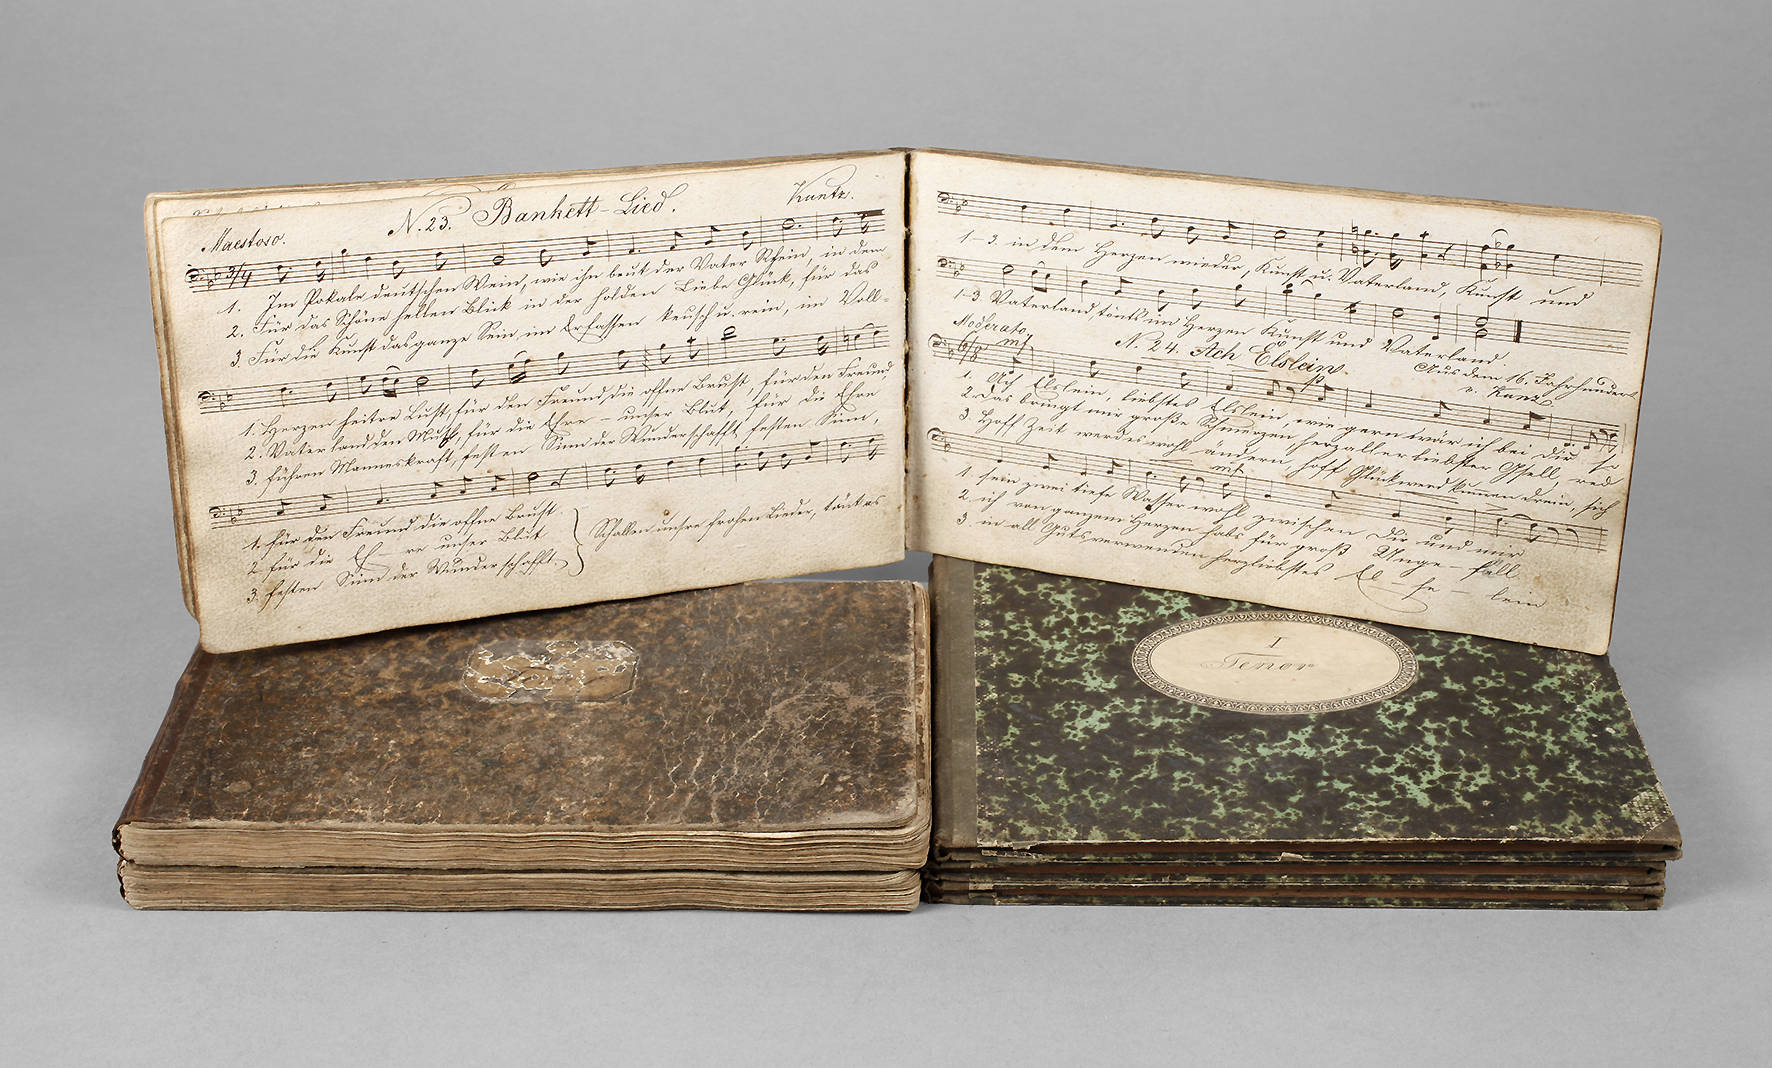 N. 23. Bankett-Lied.
Kuntz.
Maestoso.
3/4
1. Im Pokale deutschen Wein, wie ihn beut der Vater Rhein, in dem
2. Für das Schöne hellen Blick in der holden Liebe Glück, für das
3. Für die Kunst das ganze Sein im Erfassen keusch u. rein, im Voll-
1. Herzen heitre Lust, für den Freund die offne Brust, für den Freund
2. Vaterland den Muth, für die Ehre - unser Blut, für die Ehre
3. führen Manneskraft, festen Sinn der Wunder schafft festen Sinn,
1. für den Freund die offne Brust.
2. für die Eh - re unser Blut
3. festen Sinn der Wunder schafft.
Schallen unsre frohen Lieder, tönt es
1-3. in dem Herzen wieder, Kunst u. Vaterland, Kunst und
1-3. Vaterland, tönts im Herzen Kunst und Vaterland
Moderato.
N. 24. Ach Elslein.
Aus dem 16. Jahrhundert
v. Kunz
6/8
mf
1. Ach Elslein, liebstes Elslein, wie gern wär ich bei Dir so
2. Das bringt mir große Schmerzen herzallerliebster Gsell, red
3. Hoff Zeit werd es wohl ändern, hoff Glück werd kumen drein, sich
mf
1. sein zwei tiefe Wasser wohl zwischen Dir und mir
2. ich von ganzem Herzen habs für groß Unge - fäll
3. in all Guts verwenden herzliebstes El - se - lein
I
Tenor